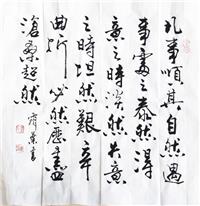 凡事順其自然遇
事處之泰然得
意之時淡然失意
之時坦然艱辛
曲折必然歷盡
滄桑超然